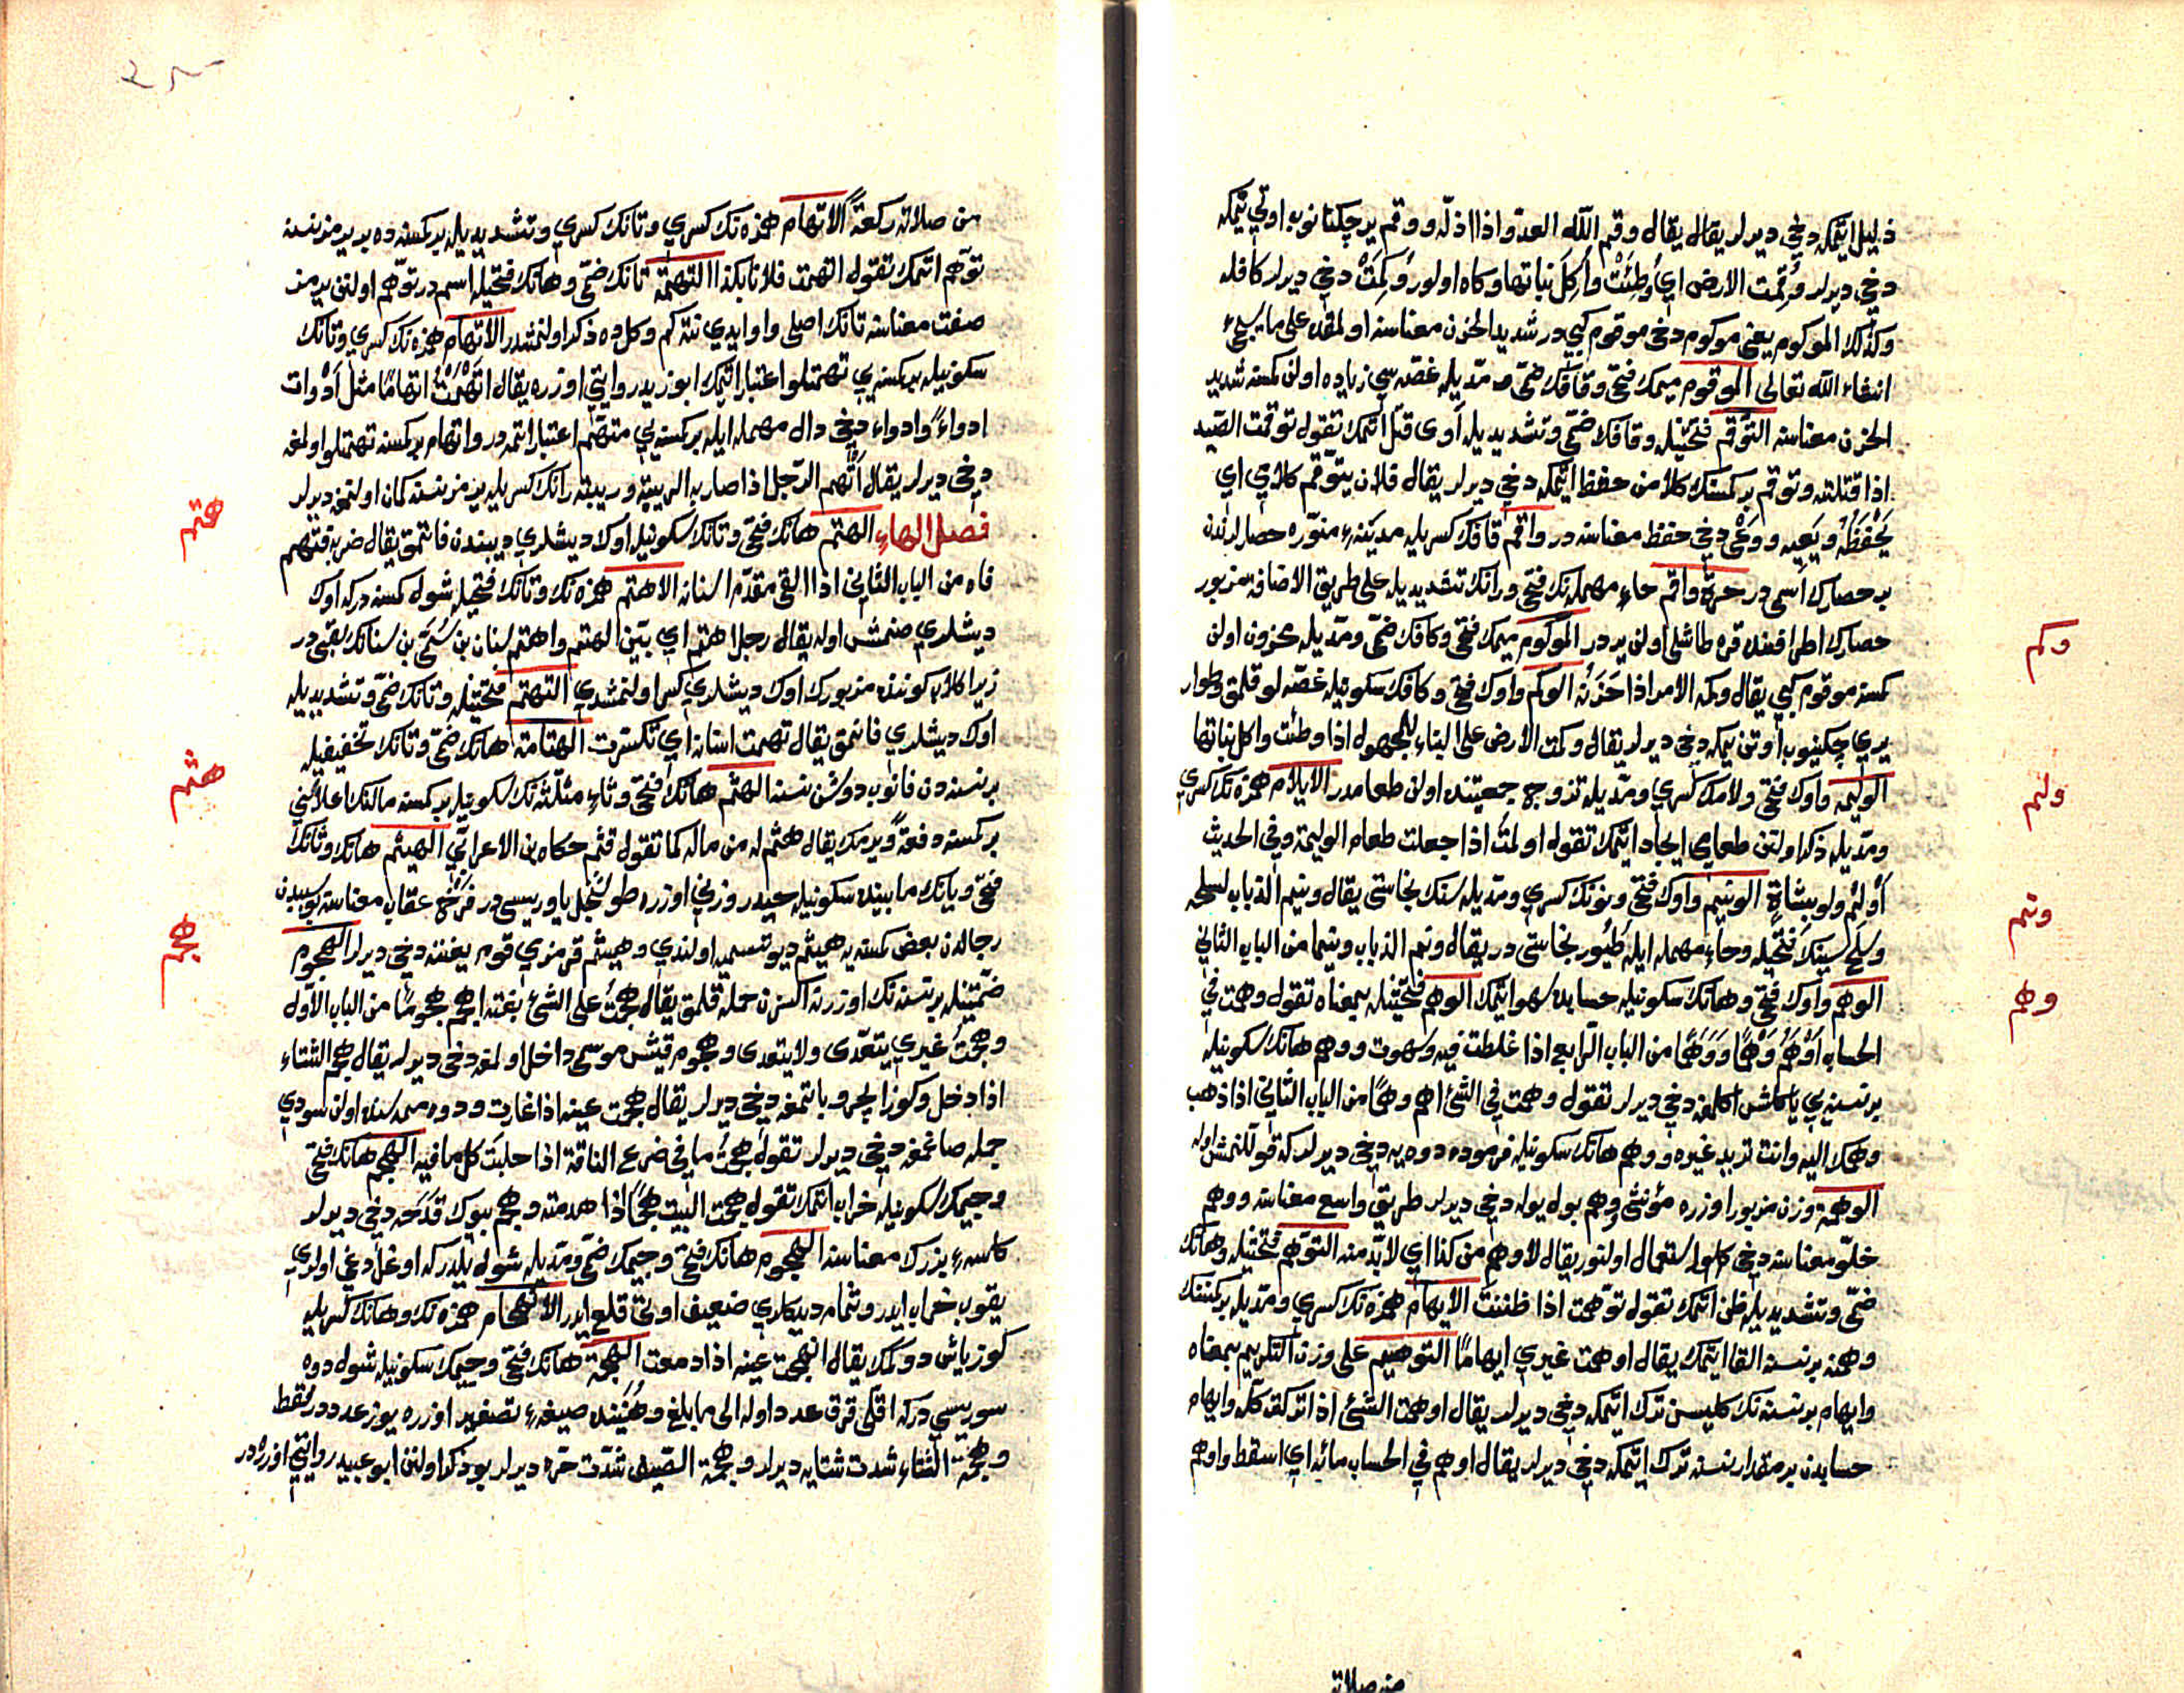 ذليل ايتمكه دخي ديرلر يقال يقال وقم اللّه العدّو اذا اذلّه ووقم ير چكنانوب اوتي يتمكه
دخي ديرلر وُقمت الارض اي وُطِئَتْ وأُكِلَ نباتها وكاه اولور وُكِمَتْ دخي ديرلر كافله
وكذلك الموكوم يعني موكوم دخي موقوم كبي در شديد الحزن معناسنه اولمقده على ما يسجئ
انشاء اللّه تعالى الموقوم ميمك فتحي وقافك ضمّي و مدّيله غصّه سي زياده اولن كمسنه شديد
الحزن معناسنه التوّقم فتحتيله وقافك ضمّي وتشديديله آوى قتل اتمك تقول توقمت الصّيد
اذا قتلته وتوقم بر كمسنك كلامن حفظ ايتمكه دخي ديرلر يقال فلان يتوّقم كلامي اي
يَحْفَظُه ويَعيه ووَعْى دخي حفظ معناسنه در واقم قافك كسريله مدينۀ منوّره حصارلرندن
بر حصارك اسمى در حرّة واقم حاء مهمله نك فتحي ورانك تشديديله على طريق الاضافة مزبور
حصارك اطرافنده قره طاشلى اولن يردر الموكوم ميمك فتحي وكافك ضمّي ومدّيله محزون اولن
كمسنه موقوم كبي يقال وكمه الامر اذا حَزَنَهُ الوكم واوك فتحي وكافك سكونيله غصّه لو قلمق وطوار
يري چكينوب اوتن يمكه دخي ديرلر يقال وكمت الارض على البناء للمجهول اذا وطئت واكل نباتها
الوليمه واوك فتحي ولامك كسري ومدّيله تزوج جمعيتنده اولن طعامدر الايلام همزه نك كسري
ومدّيله ذكر اولنن طعامي ايجاد ايتمك تقول اولمتُ اذا جعلت طعام الوليمة وفي الحديث
أَوْلِمْ ولو بشاةٍ الونيم واوك فتحي ونونك كسري ومدّيله سنك نجاستى يقال ونيم الذباب لسلحه
وسَلح سينك فتحيله وحاء مهمله ايله طُيُور نجاستى در يقال ونم الذباب ونيما من الباب الثاني
الوهم واوك فتحي وهانك سكونيله حسابده سهو ايتمك الوهم فتحتيله بمعناه تقول وهمت في
الحساب أَوْهَمُ وَهْمًا ووَهَمًا من الباب الرّابع اذا غلطت فيه وسهوت ووهم هانك سكونيله
بر نسنه يي ياكلش اكلمغه دخي ديرلر تقول وهمت في الشئ اهم وهمًا من الباب الثاني اذا ذهب
وهمك اليه وانت تريد غيره ووهم هانك سكونيله فرموده دوه يه دخي ديرلر كه قوللنمش اوله
الوهمة وزن مزبور اوزره مؤنثي وهم بول يوله دخي ديرلر طريق واسع معناسنه ووهم
خلّو معناسنه دخي كلور استعمال اولنور يقال لا وهم من كذا اي لا بدّ منه التوّهم فتحتيله وهانك
ضمّي وتشديديله ظن اتمك تقول توّهمت اذا ظننت الايهام همزه نك كسري ومدّيله بر كمسنك
وهمنه بر نسنه القا ايتمك يقال اوهمت غيري ايهامًا التوهيم على وزن التكريم بمعناه
وايهام بر نسنه نك كليسن ترك ايتمكه دخي ديرلر يقال اوهمت الشئ اذا تركته كلّه وايهام
حسابدن بر مقدار نسنه ترك ايتمكه دخي ديرلر يقال اوهم في الحساب مائة اي اسقط واوهم
من صلاته
وكم
ولم
ونم
وهم
من صلاته ركعةً الاتهام همزه نك كسري وتانك كسري وتشديديله بر كمسنه ده بر يرمز نسنه
توّهم اتمك تقول اتهمت فلانا بكذا التهمة تانك ضمّي وهانك فتحيله اسم در توّهم اولنن يرمز
صفت معناسنه تانك اصلى واو ايدي نته كم وكل ده ذكر اولنمشدر الاتهام همزه نك كسري وتانك
سكونيله بر كمسنه يي تهمتلو اعتبار اتمك ابو زيد روايتي اوزره يقال اتْهَمْتُ اتهامًا مثل أَدْوات
ادواءً وادواء دخي دال مهمله ايله بر كمسنه يي متهّم اعتبار اتمه در واتهام بر كمسنه تهمتلو اولمغه
دخي ديرلر يقال أَتْهم الرّجل اذا صار به الريبة وريبة رانك كسريله يرمز نسنه كمان اولنمغه ديرلر
فصل الهاء الهتم هانك فتحي وتانك سكونيله اوك ديشلري ديبندن قاتمق يقال ضربه فهتم
فاه من الباب الثاني اذا القى مقدّم اسنانه الاهتم همزه نك وتانك فتحيله شول كمسنه دركه اوك
ديشلري صنمش اوله يقال رجل اهتم اي بيّن الهتم واهتم سنان بن سُمَيّ بن سنانك لقبى در
زيرا كلاب كوننده مزبورك اوك ديشلري كسر اولنمشدي التهتم فتحتيله وتانك ضمّي وتشديديله
اوك ديشلري قاتمق يقال تهتمت اسنانه اي تكسّرت الهتامة هانك ضمّي وتانك تخفيفيله
بر نسنه دن قانوب دوشن نسنه الهثم هانك فتحي وثاء مثلثه نك سكونيله بر كمسنه مالنك اعلاسني
بر كمسنه دفعةً ويرمك يقال هثم له من ماله كما تقول قثم حكاه ابن الاعرابّي الهيثم هانك وثانك
فتحي ويانك مابيننده سكونيله حيدر وزني اوزره طوشنجل ياوريسى در فَرْخ عقاب معناسنه
رجالدن بعض كمسنه يه هيثم ديو تسميه اولندي وهيثم قرمزي قوم يغننه دخي ديرلر الهجوم
ضمّتيله بر نسنه نك اوزرنه اكسزن حمله قلمق يقال هجمت على الشئ بغتة اهجم هجومًا من الباب الاوّل
وهجمت غيري يتعدّى ولا يتعدى وهجوم قيش موسمى داخل اولمغه دخي ديرلر يقال هجم الشتاء
اذا دخل وكوز ايچرو باتمغه دخي ديرلر يقال هجمت عينه اذا غارت ودوه ممه سنده اولن سودي
جمله صاغمغه دخي ديرلر تقول هجمتُ ما في ضرع الناقة اذا حلبتَ كل ما فيه الهجم هانك فتحي
وجيمك سكونيله خراب اتمك تقول هجمت البيت هجمًا اذا هدمته وهجم بيوك قَدَحه دخي ديرلر
كاسۀ بزرك معناسنه الهجوم هانك فتحي وجيمك ضمّي ومدّيله شول يلدركه اوغلدغي اولري
يقوب خراب ايدر وثمام ديدكلري ضعيف اوتى قلع ايدر الانهجام همزه نك وهانك كسريله
كوز ياشى دوكمك يقال انهجمت عينه اذا دمعت الهجمة هانك فتحي وجيمك سكونيله شول دوه
سوريسى دركه اقلى قرق عدد اوله الى ما بلغ وهُنَيْده صيغۀ تصغير اوزره يوز عدد در فقط
وهجمة الشتاء شدت شتايه ديرلر وهجمة الصّيف شدّت حرّه ديرلر بو ذكر اولنن ابو عبيد روايتي اوزره در
هتم
هثم
هجم